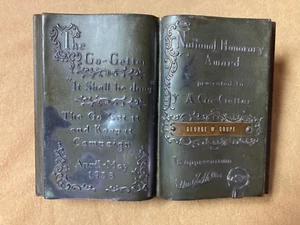 The
Go-Getter
It Shall be done
The Go-Getter
and Keeper
Campaign
April-May
1938
National Honorary
Award
presented to
A Go-Getter
GEORGE W. COUPE
In appreciation